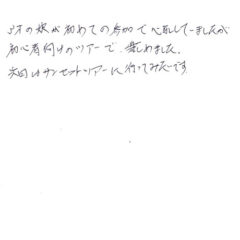 3才の娘が初めての参加で心配していましたが
初心者向けのツアーで、楽しめました。
次回はサンセットツアーに行ってみたいです